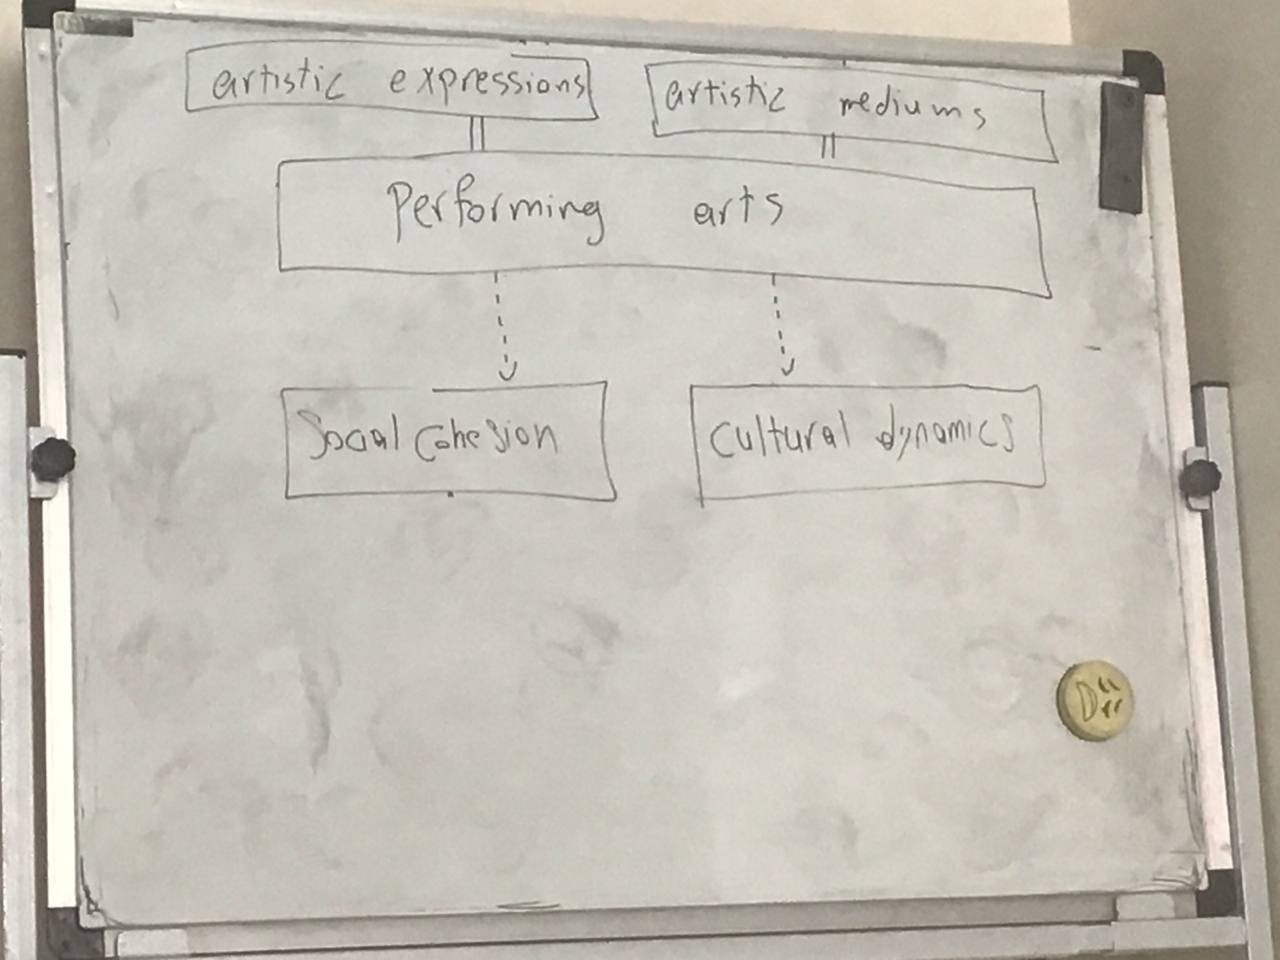 artistic expressions
artistic mediums
Performing arts
Social Cohesion
Cultural dynamics